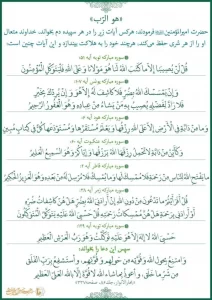 «هو الرّب»
حضرت امیرالمؤمنین (علیه‌السلام) فرمودند: هرکس آیات زیر را در هر سپیده دم بخواند، خداوند متعال
او را از هر شری حفظ می‌کند، هرچند خود را به هلاکت بیندازد و این آیات چنین است:
سوره مبارکه توبه آیه ۵۱
قُلْ لَنْ یُصِیبَنَا إِلَّا مَا کَتَبَ اللَّهُ لَنَا هُوَ مَوْلَانَا وَ عَلَى اللَّهِ فَلْیَتَوَکَّلِ الْمُؤْمِنُونَ
سوره مبارکه یونس آیه ۱۰۷
وَإِنْ یَمْسَسْکَ اللَّهُ بِضُرٍّ فَلَا کَاشِفَ لَهُ إِلَّا هُوَ وَ إِنْ یُرِدْکَ بِخَیْرٍ
فَلَا رَادَّ لِفَضْلِهِ یُصِیبُ بِهِ مَنْ یَشَاءُ مِنْ عِبَادِهِ وَ هُوَ الْغَفُورُ الرَّحِیمُ
سوره مبارکه هود آیه ۶
وَ مَا مِنْ دَابَّةٍ فِی الْأَرْضِ إِلَّا عَلَى اللَّهِ رِزْقُهَا وَ یَعْلَمُ مُسْتَقَرَّهَا وَ مُسْتَوْدَعَهَا کُلٌّ فِی کِتَابٍ مُبِینٍ
سوره مبارکه عنکبوت آیه ۶۰
وَ کَأَیِّنْ مِنْ دَابَّةٍ لَا تَحْمِلُ رِزْقَهَا اللَّهُ یَرْزُقُهَا وَ إِیَّاکُمْ وَ هُوَ السَّمِیعُ الْعَلِیمُ
سوره مبارکه فاطر آیه ۲
مَا یَفْتَحِ اللَّهُ لِلنَّاسِ مِنْ رَحْمَةٍ فَلَا مُمْسِکَ لَهَا وَ مَا یُمْسِکْ فَلَا مُرْسِلَ لَهُ مِنْ بَعْدِهِ وَ هُوَ الْعَزِیزُ الْحَکِیمُ
سوره مبارکه زمر آیه ۳۸
قُلْ أَفَرَأَیْتُمْ مَا تَدْعُونَ مِنْ دُونِ اللَّهِ إِنْ أَرَادَنِیَ اللَّهُ بِضُرٍّ هَلْ هُنَّ کَاشِفَاتُ ضُرِّهِ
أَوْ أَرَادَنِی بِرَحْمَةٍ هَلْ هُنَّ مُمْسِکَاتُ رَحْمَتِهِ قُلْ حَسْبِیَ اللَّهُ عَلَیْهِ یَتَوَکَّلُ الْمُتَوَکِّلُونَ
سوره مبارکه توبه آیه ۱۲۹
حَسْبِیَ اللَّهُ لَا إِلَهَ إِلَّا هُوَ عَلَیْهِ تَوَکَّلْتُ وَ هُوَ رَبُّ الْعَرْشِ الْعَظِیمِ
سپس این دعا را بخواند:
وَ أَمْتَنِعُ بِحَوْلِ اللَّهِ وَ قُوَّتِهِ مِنْ حَوْلِهِمْ وَ قُوَّتِهِمْ، وَ أَسْتَشْفِعُ بِرَبِّ الْفَلَقِ
مِنْ شَرِّ مَا خَلَقَ، وَ أَعُوذُ بِمَا شَاءَ اللَّهُ لَا قُوَّةَ إِلَّا بِاللَّهِ الْعَلِیِّ الْعَظِیمِ